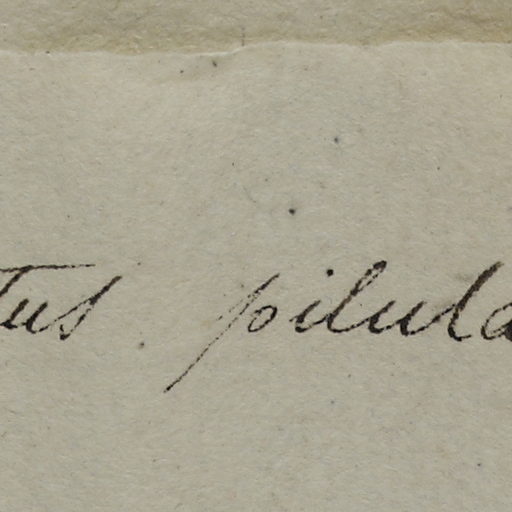 tus pilula